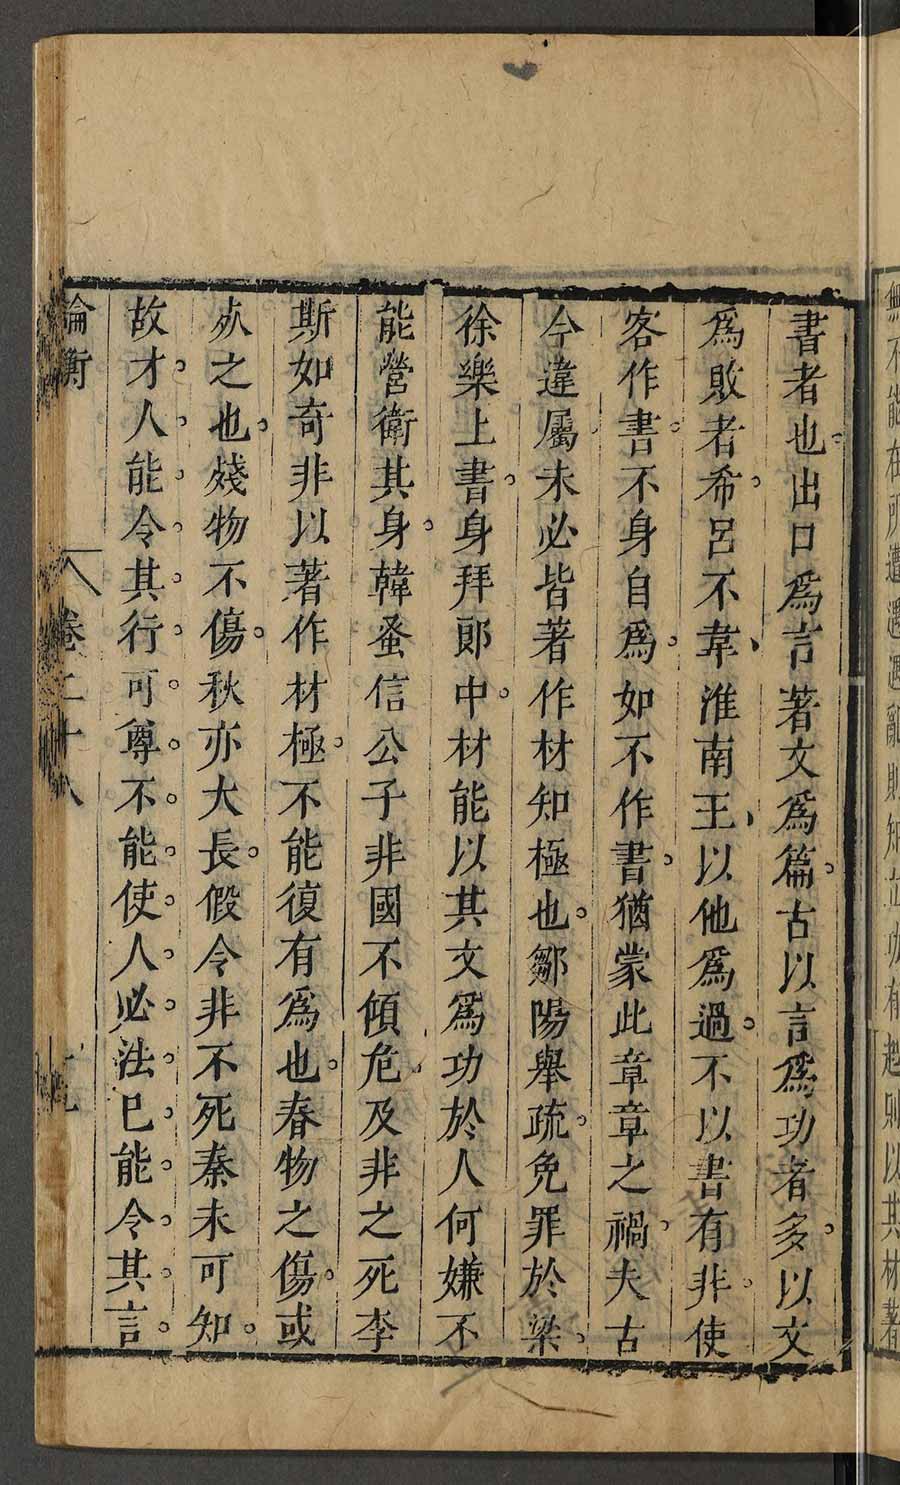 無不能在所遭遇遇亂則知立功有起則以其材著
書者也出口爲言著文爲篇古以言爲功者多以文
爲敗者希呂不韋淮南王以他爲過不以書有非使
客作書不身自爲如不作書猶蒙此章章之禍夫古
今違屬未必皆著作材知極也鄒陽舉疏免罪於梁
徐樂上書身拜郎中材能以其文爲功於人何嫌不
能營衛其身韓蚤信公子非國不傾危及非之死李
斯如奇非以著作材極不能復有爲也春物之傷或
死之也殘物不傷秋亦大長假令非不死秦未可知
故才人能令其行可尊不能使人必法已能令其言
論衡 卷二十八